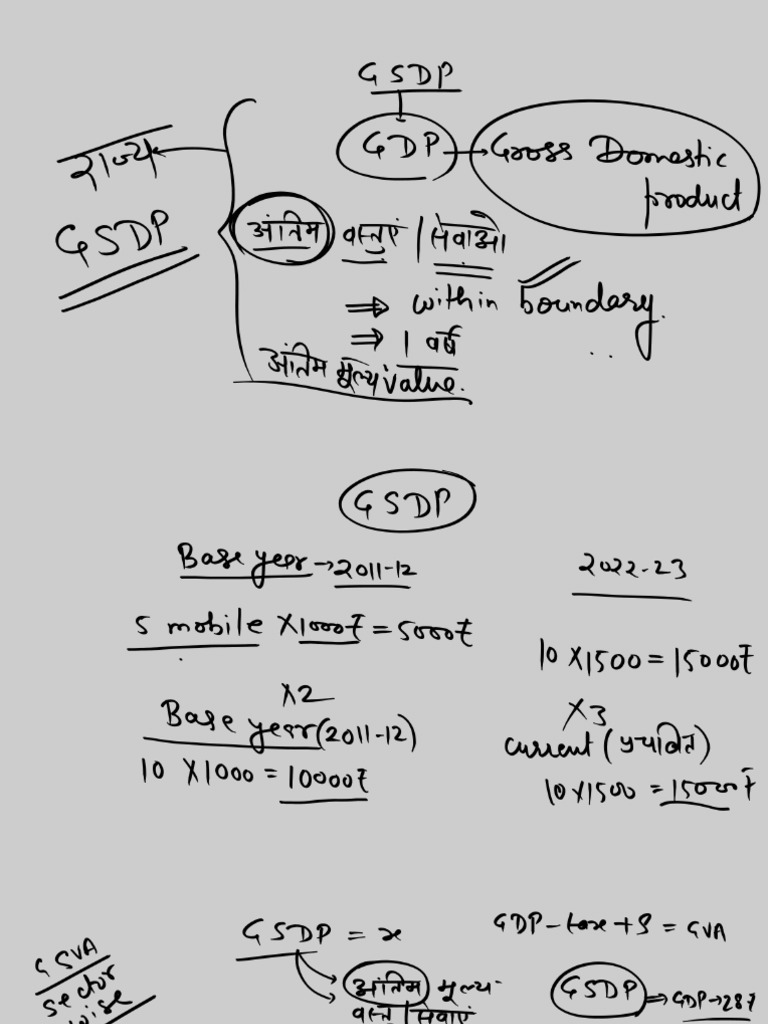 GSDP
GDP → Gross Domestic product
राज्य
GSDP
अंतिम वस्तुएं / सेवाओ
⇒ within boundary.
⇒ 1 वर्ष
अंतिम मूल्य value.
GSDP
Base year → 2011-12
2022-23
5 mobile X 1000₹ = 5000₹
10 X 1500 = 15000₹
X2
X3
Base year (2011-12)
current (प्रचलित)
10 X 1000 = 10000₹
10 X 1500 = 15000₹
GSDP = x
GDP - tax + S = GVA
GSVA
sector
wise
अंतिम मूल्य
वस्तु / सेवाएं
GSDP ⇒ GDP →